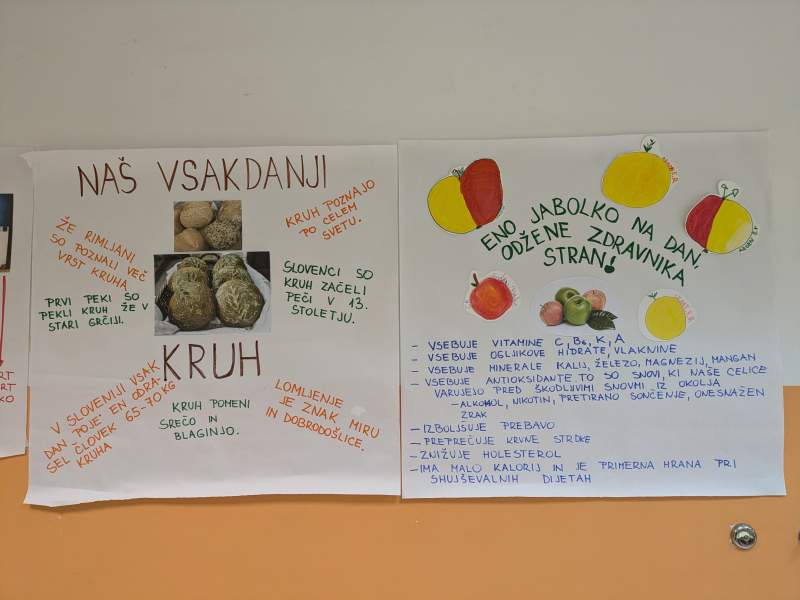 RT
RT
KO
NAŠ VSAKDANJI
ŽE RIMLJANI
SO POZNALI VEČ
VRST KRUHA
KRUH POZNAJO
PO CELEM
SVETU.
PRVI PEKI SO
PEKLI KRUH ŽE V
STARI GRČIJI.
SLOVENCI SO
KRUH ZAČELI
PEČI V 13.
STOLETJU.
KRUH
V SLOVENIJI VSAK
DAN POJE EN ODRA-
SEL ČLOVEK 65-70 KG
KRUHA
KRUH POMENI
SREČO IN
BLAGINJO.
LOMLJENJE
JE ZNAK MIRU
IN DOBRODOŠLICE.
ENO JABOLKO NA DAN,
ODŽENE ZDRAVNIKA
STRAN!
- VSEBUJE VITAMINE C, B6, K, A
- VSEBUJE OGLJIKOVE HIDRATE, VLAKNINE
- VSEBUJE MINERALE KALIJ, ŽELEZO, MAGNEZIJ, MANGAN
- VSEBUJE ANTIOKSIDANTE TO SO SNOVI, KI NAŠE CELICE
VARUJEJO PRED ŠKODLJIVIMI SNOVMI IZ OKOLJA
- ALKOHOL, NIKOTIN, PRETIRANO SONČENJE, ONESNAŽEN
ZRAK
- IZBOLJŠUJE PREBAVO
- PREPREČUJE KRVNE STRDKE
- ZNIŽUJE HOLESTEROL
- IMA MALO KALORIJ IN JE PRIMERNA HRANA PRI
SHUJŠEVALNIH DIJETAH